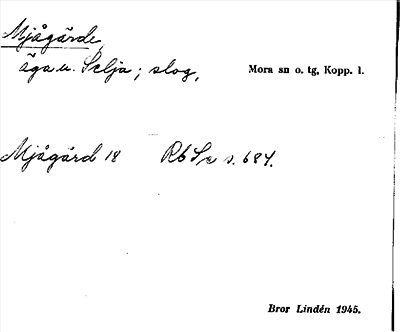 Mjågärde,
äga u. Selja; slog,
Mora sn o. tg, Kopp. l.
Mjågärd 18 Rb S:e s. 684.
Bror Lindén 1945.